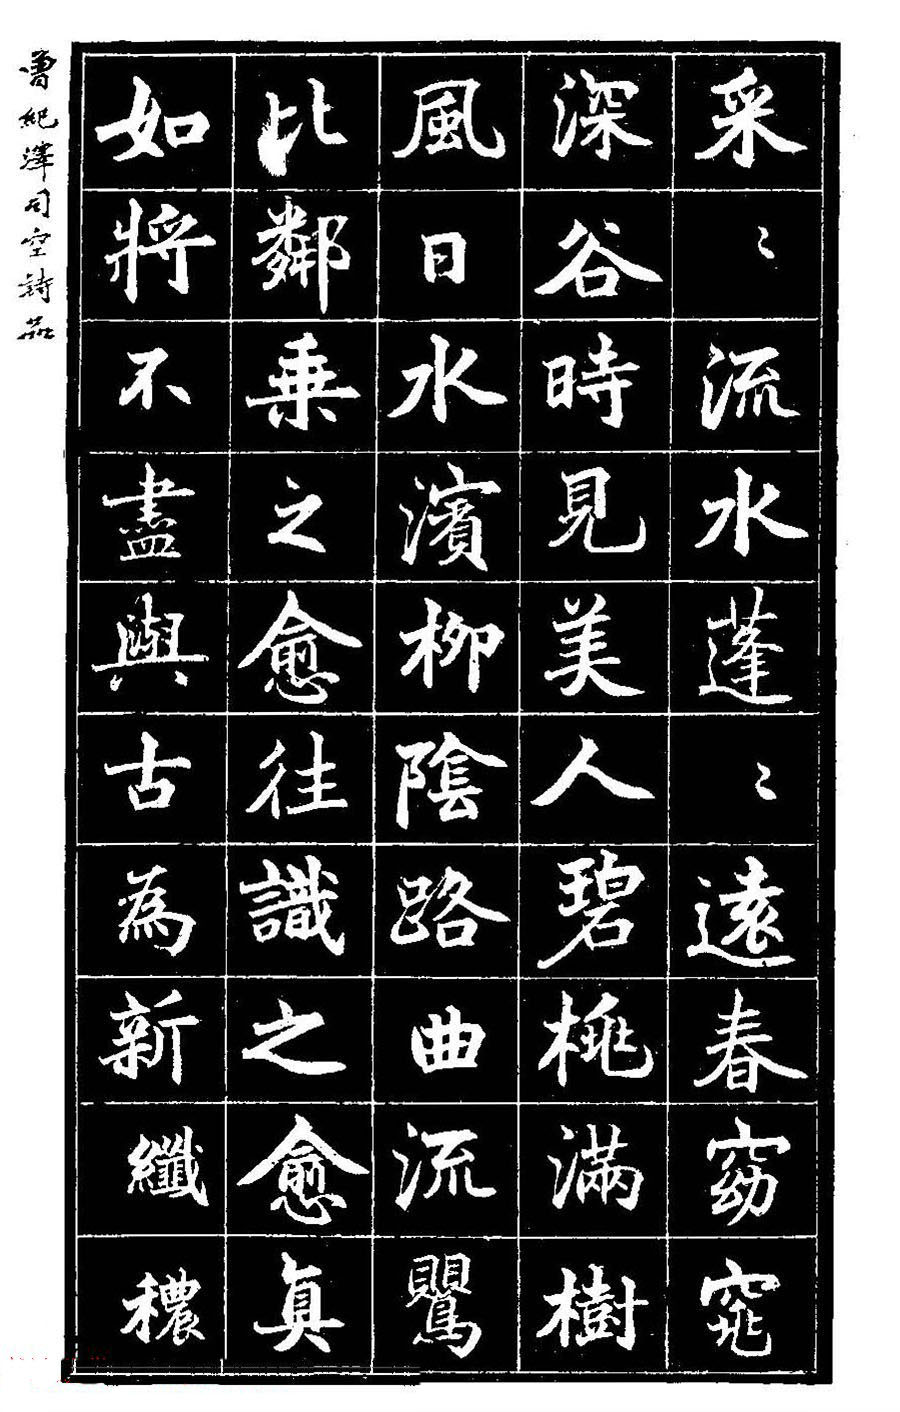 采〻流水蓬〻遠春窈窕
深谷時見美人碧桃滿樹
風日水濱柳陰路曲流鸎
比鄰乗之愈往識之愈真
如將不盡與古為新纖穠
曾紀澤司空詩品